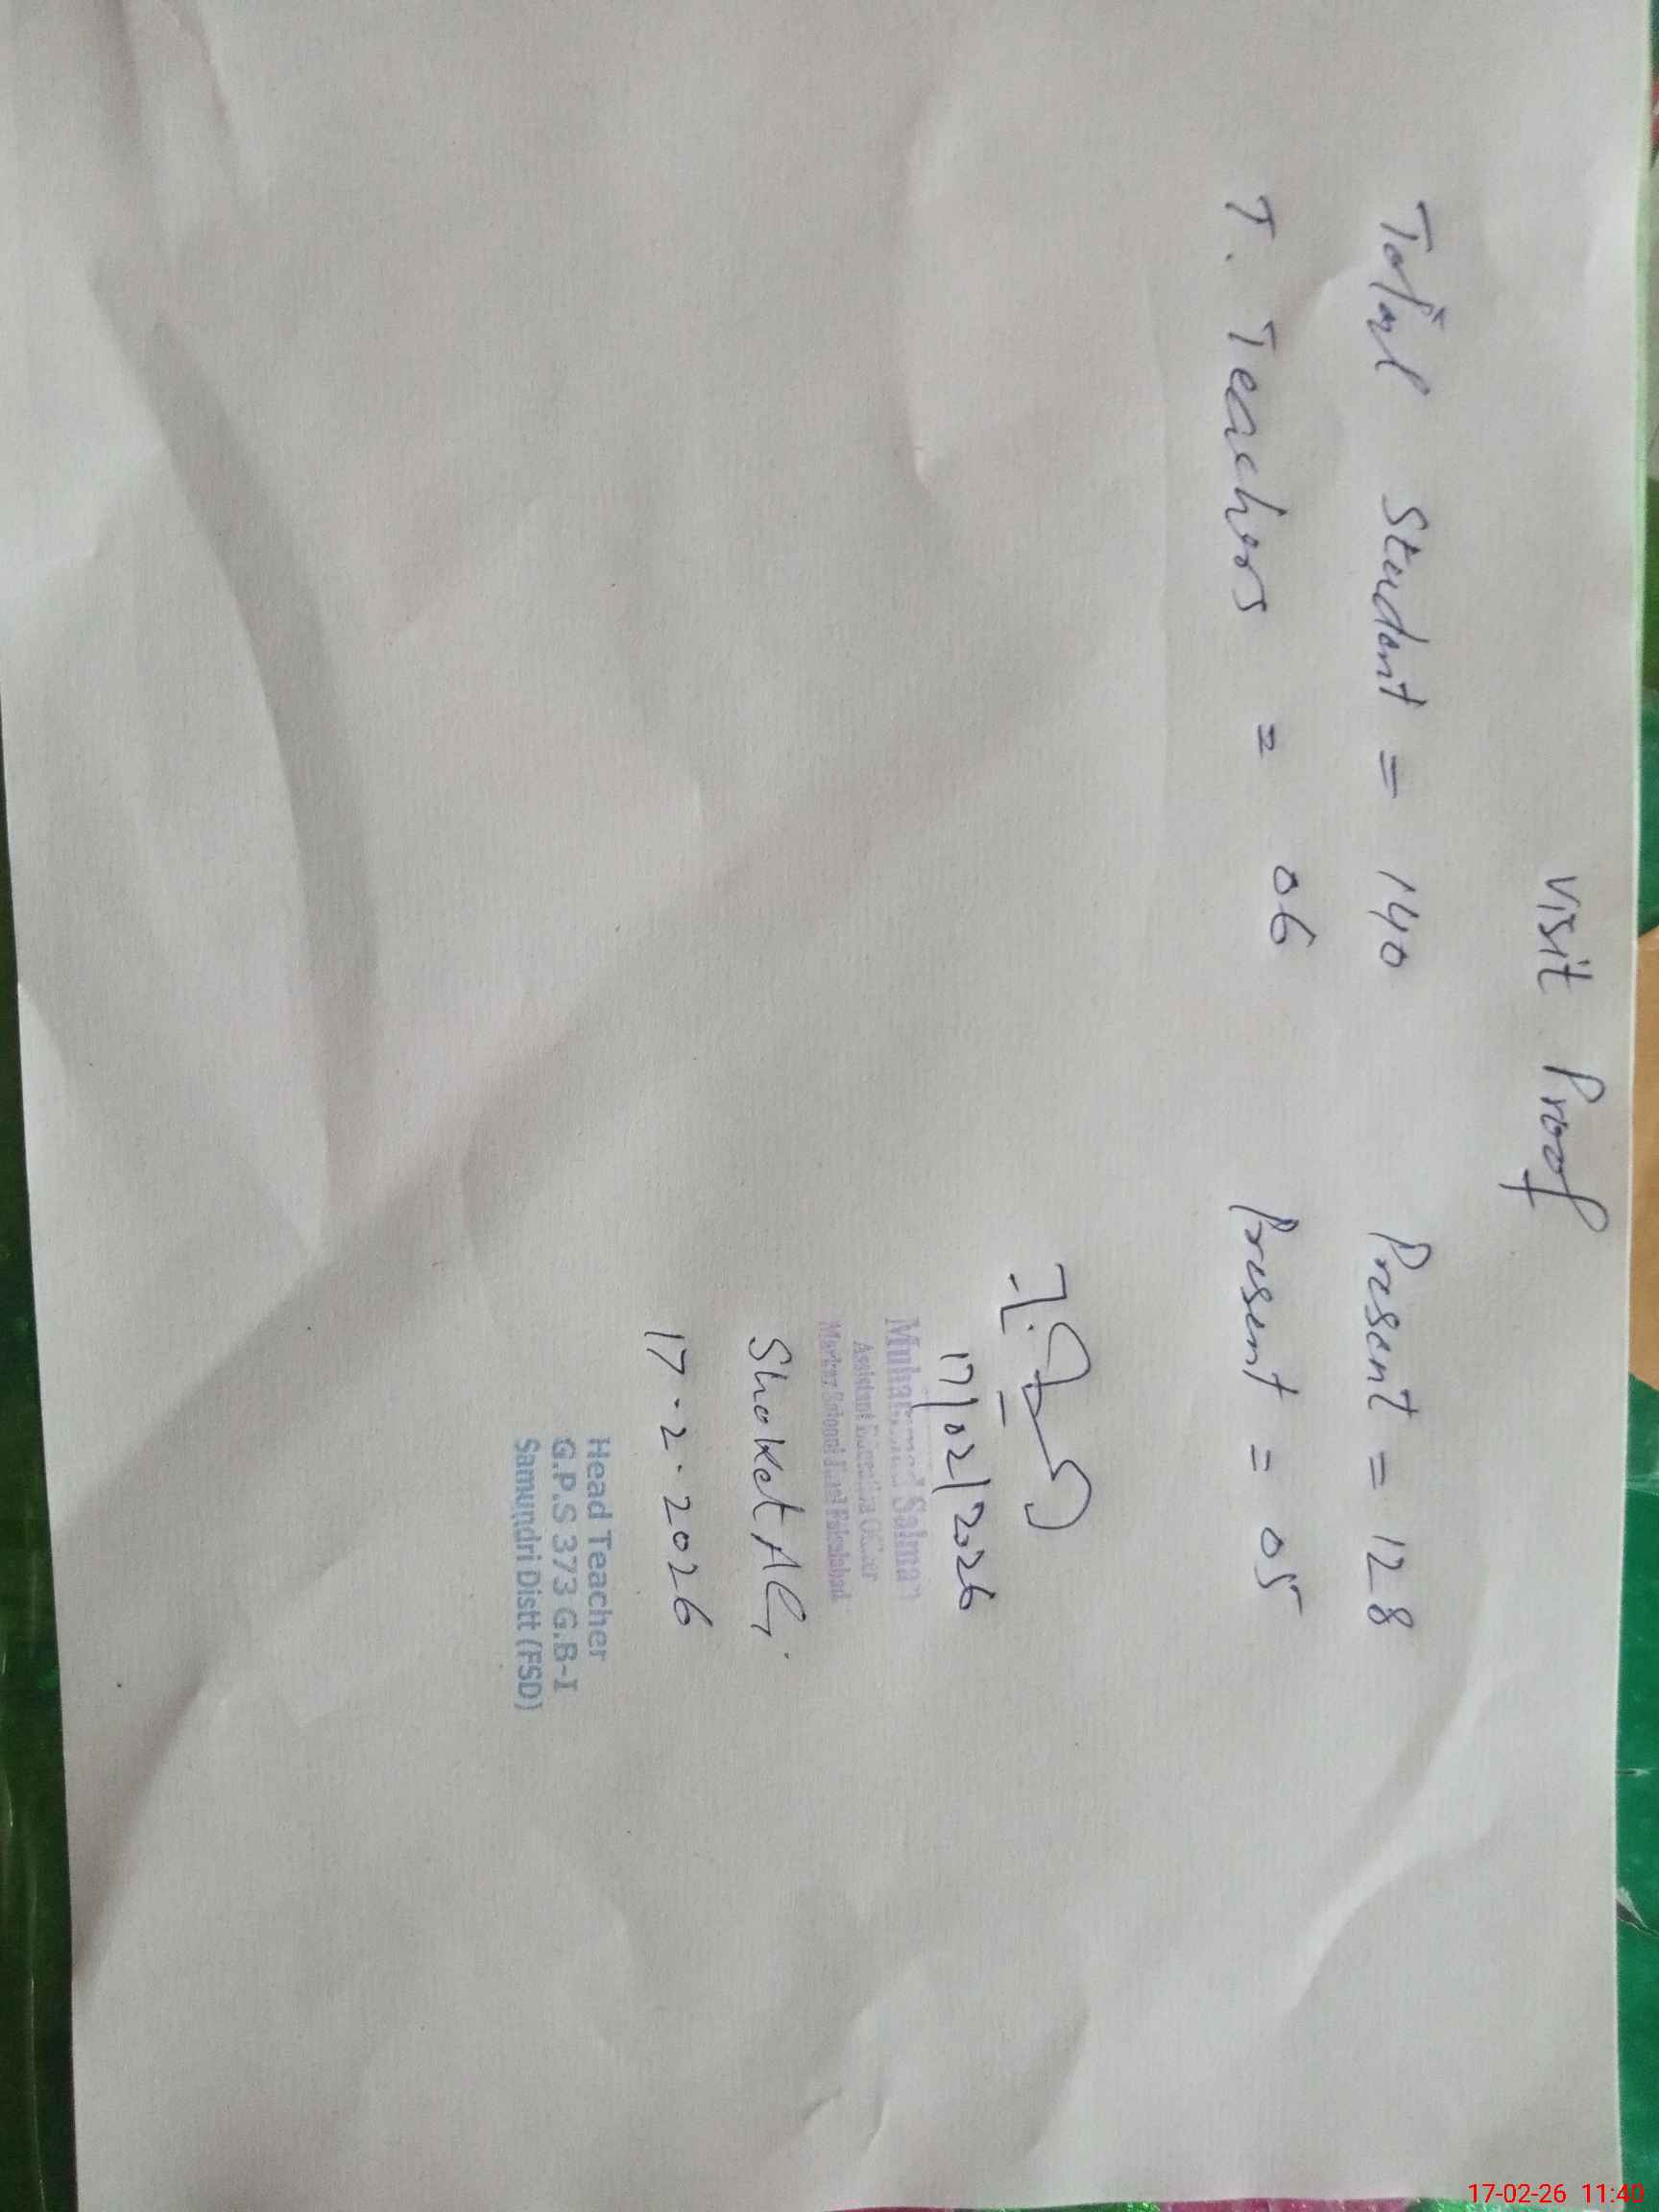 Visit Proof
Total Student = 140 Present = 128
T. Teachers = 06 Present = 05
17/02/2026
Muhammad Salman
Assistant Education Officer
Shoket Ali
17-2-2026
Head Teacher
G.P.S 373 G.B-I
Samundri Distt (FSD)
17-02-26 11:40